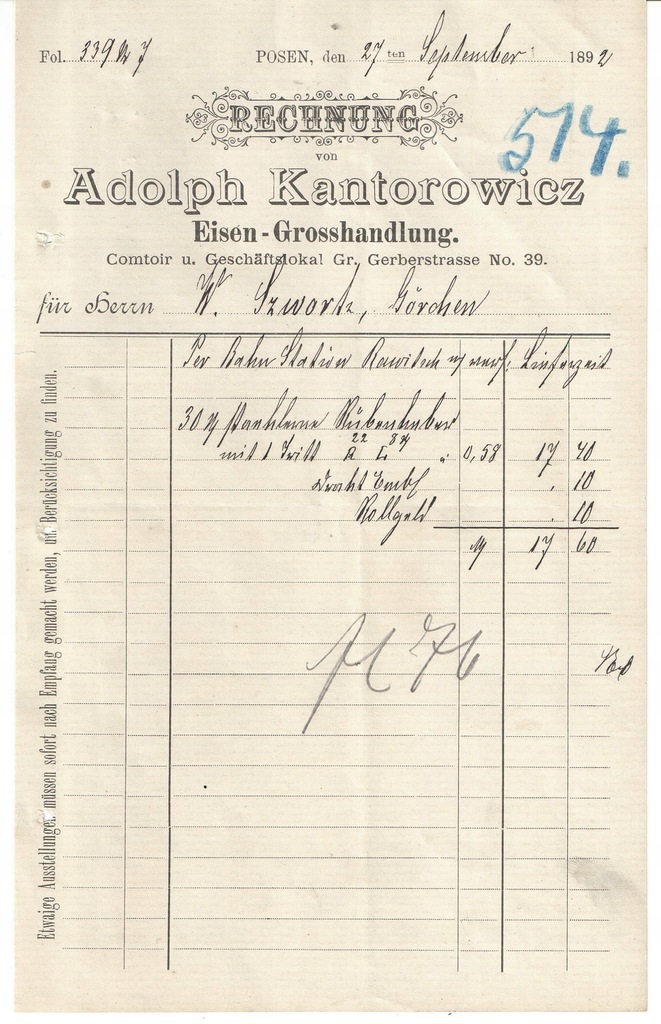 Fol. 339
POSEN, den 27ten September 1892
514.
RECHNUNG
von
Adolph Kantorowicz
Eisen-Grosshandlung.
Comtoir u. Geschäftslokal Gr. Gerberstrasse No. 39.
für Herrn W. Szwortz, Görchen
Per Bahn Station Rawitsch Lieferzeit
30 Rübenheber
mit 1 Tritt " 0,58 17 40
Draht . 10
Rollgeld . 10
M 17 60
76
Etwaige Ausstellungen müssen sofort nach Empfang gemacht werden, um Berücksichtigung zu finden.